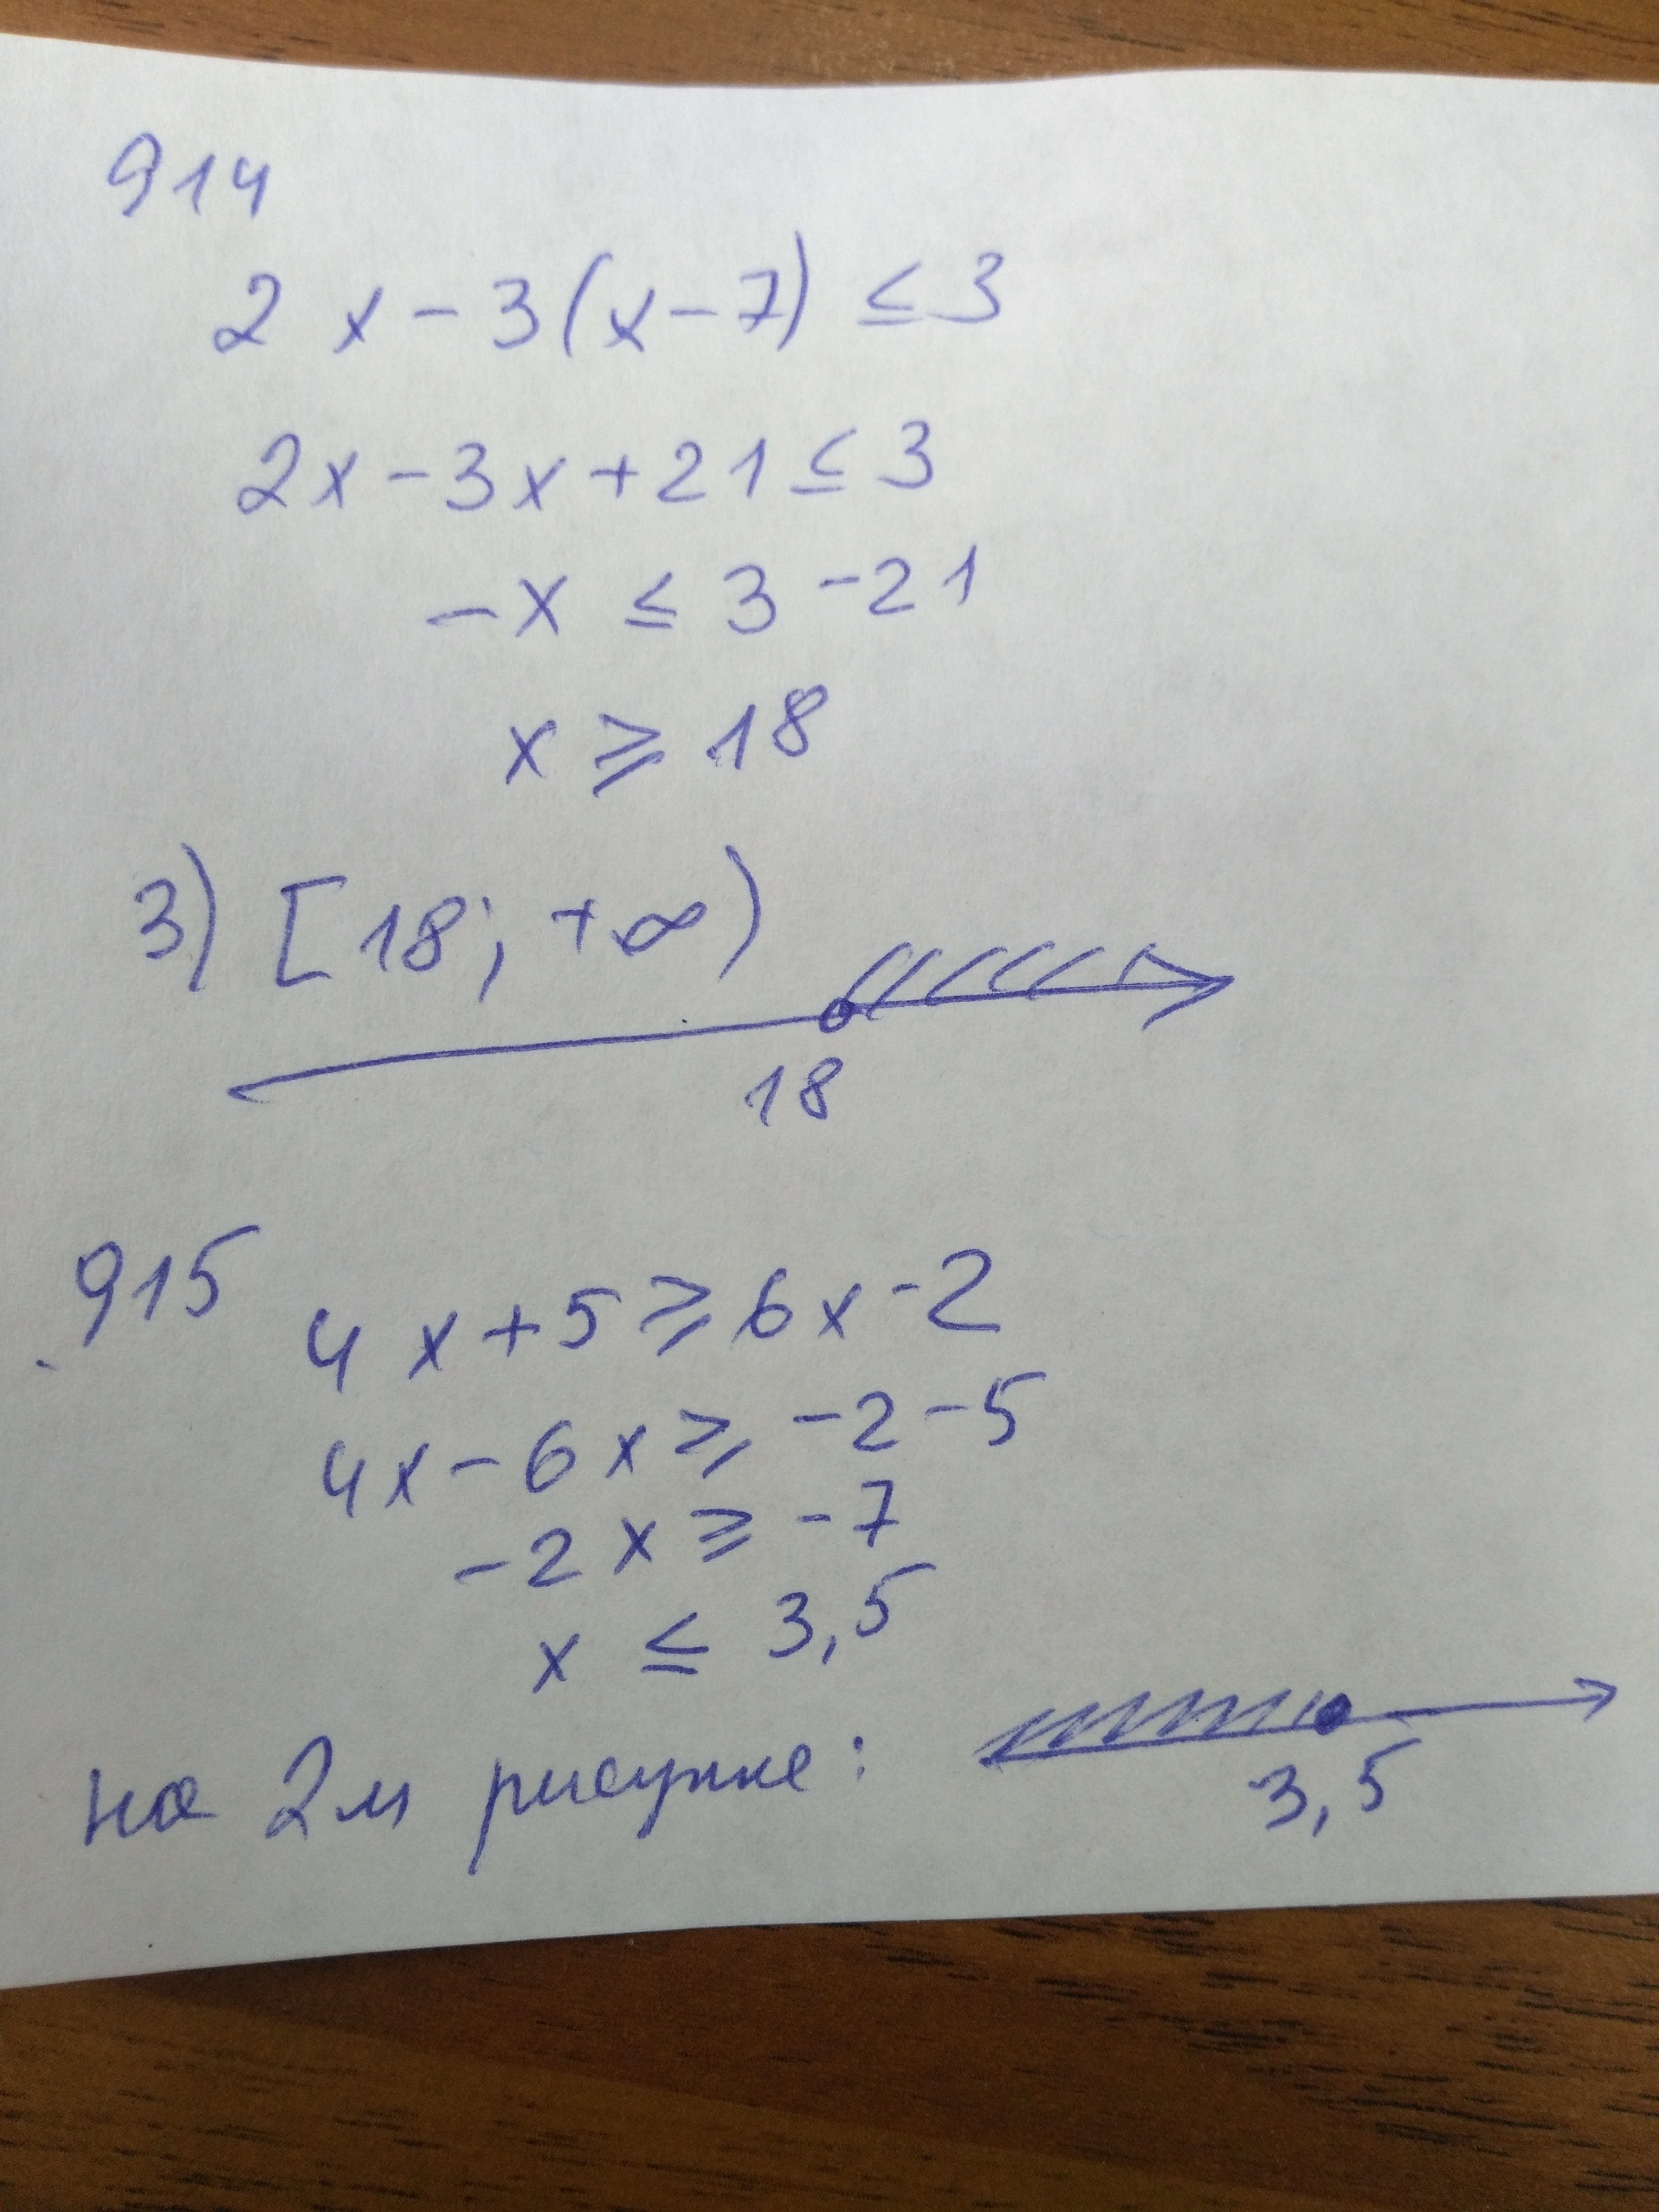 914
2x-3(x-7) ≤ 3
2x-3x+21 ≤ 3
-x ≤ 3-21
x ⩾ 18
3) [18; +∞)
18
915 4x+5 ⩾ 6x-2
4x-6x ⩾ -2-5
-2x ⩾ -7
x ≤ 3,5
на 2м рисунке:
3,5